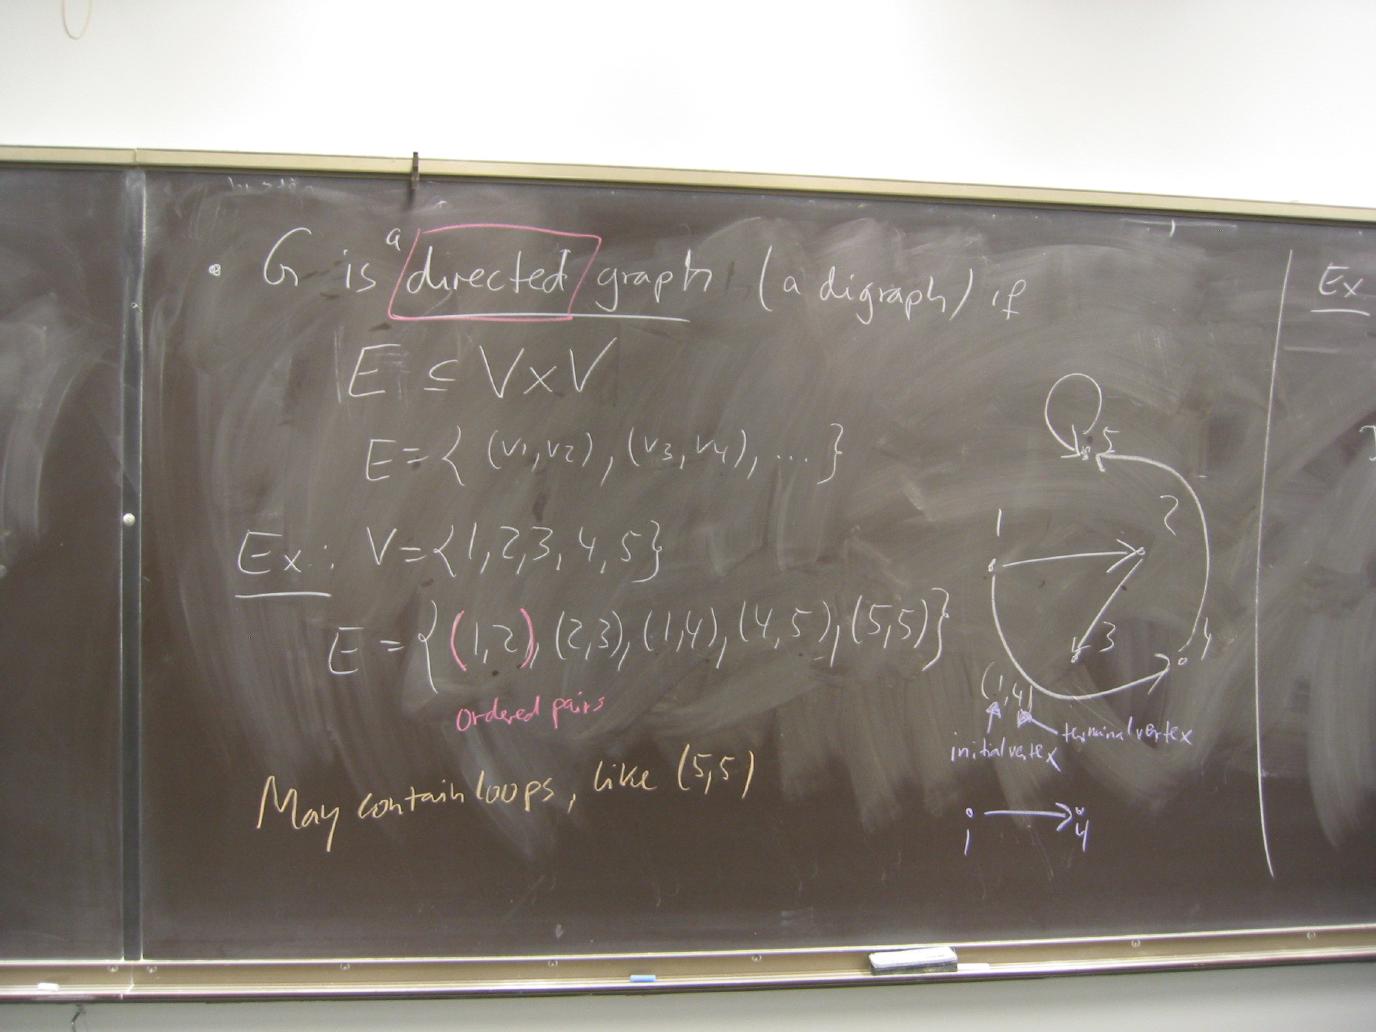 • G is a directed graph (a digraph) if
E ⊆ V×V
E={ (v1,v2), (v3,v4), ... }
Ex: V={1,2,3,4,5}
E = {(1,2),(2,3),(1,4),(4,5),(5,5)}
ordered pairs
May contain loops, like (5,5)
5
1
2
3
4
(1,4)
initial vertex
terminal vertex
1
4
Ex